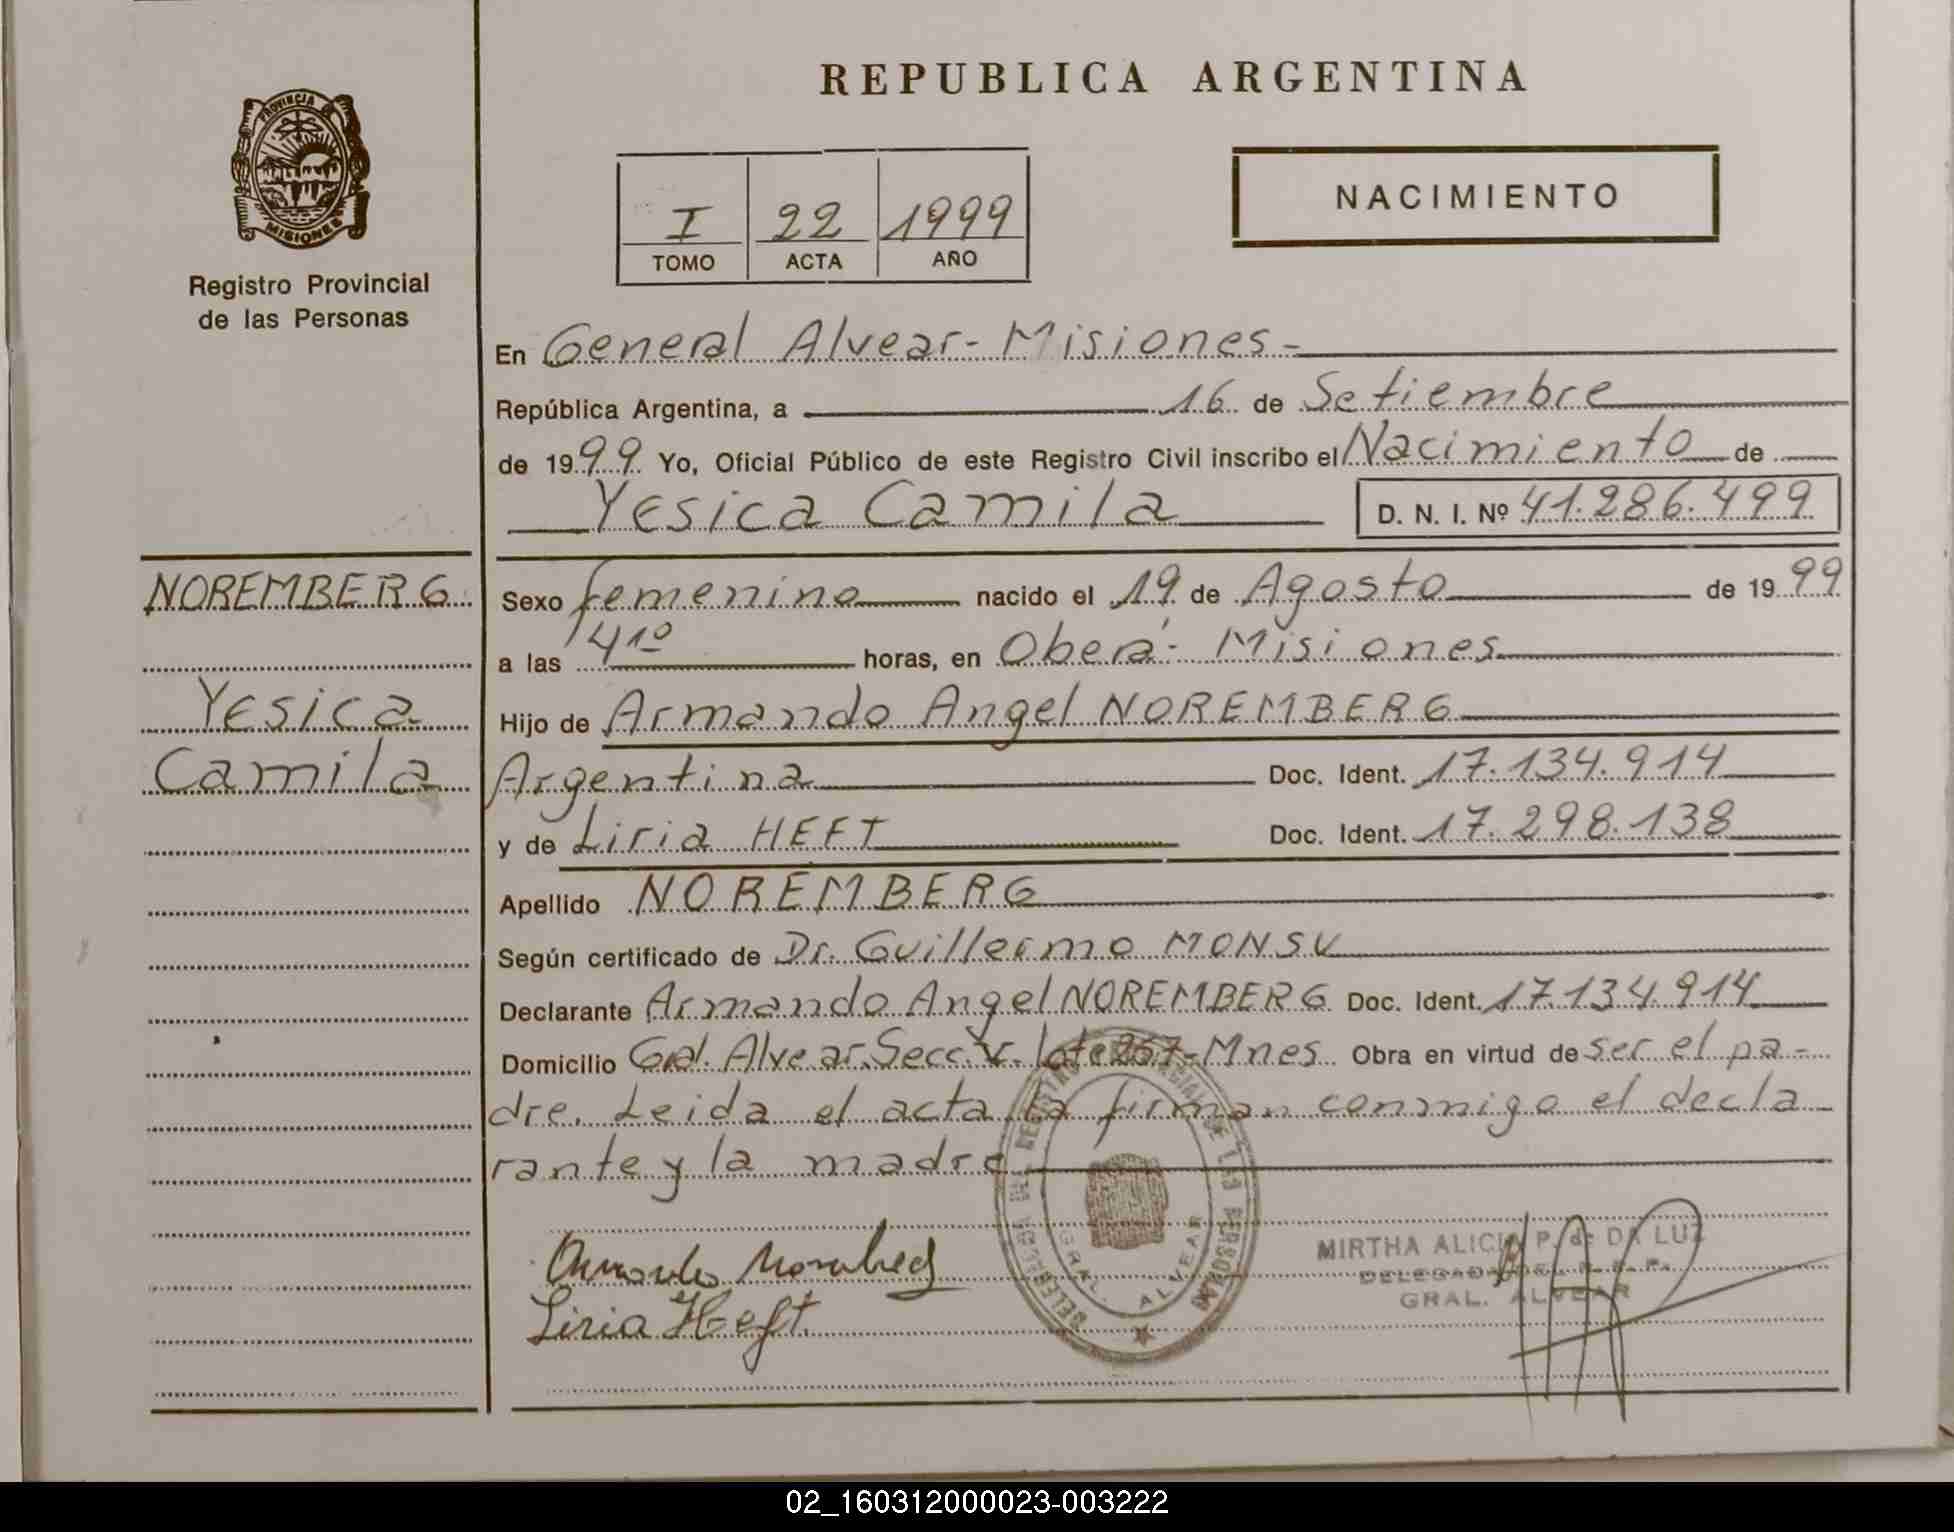 REPUBLICA ARGENTINA
PROVINCIA
MISIONES
Registro Provincial
de las Personas
I 22 1999
TOMO ACTA AÑO
NACIMIENTO
En General Alvear - Misiones -
República Argentina, a 16 de Setiembre
de 1999 Yo, Oficial Público de este Registro Civil inscribo el Nacimiento de
Yesica Camila D. N. I. Nº 41.286.499
NOREMBERG
Yesica
Camila
Sexo femenino nacido el 19 de Agosto de 1999
a las horas, en Oberá - Misiones
Hijo de Armando Angel NOREMBERG
Argentina Doc. Ident. 17.134.914
y de Liria HEFT Doc. Ident. 17.298.138
Apellido NOREMBERG
Según certificado de Dr. Guillermo MONSU
Declarante Armando Angel NOREMBERG Doc. Ident. 17.134.914
Domicilio Gral. Alvear. Secc. V. lote 257 - Mnes Obra en virtud de ser el pa-
dre. Leida el acta la firman conmigo el decla
rante y la madre
Liria Heft
GRAL. ALVEAR
MIRTHA ALICIA P. de DA LUZ
GRAL. ALVEAR
02_160312000023-003222